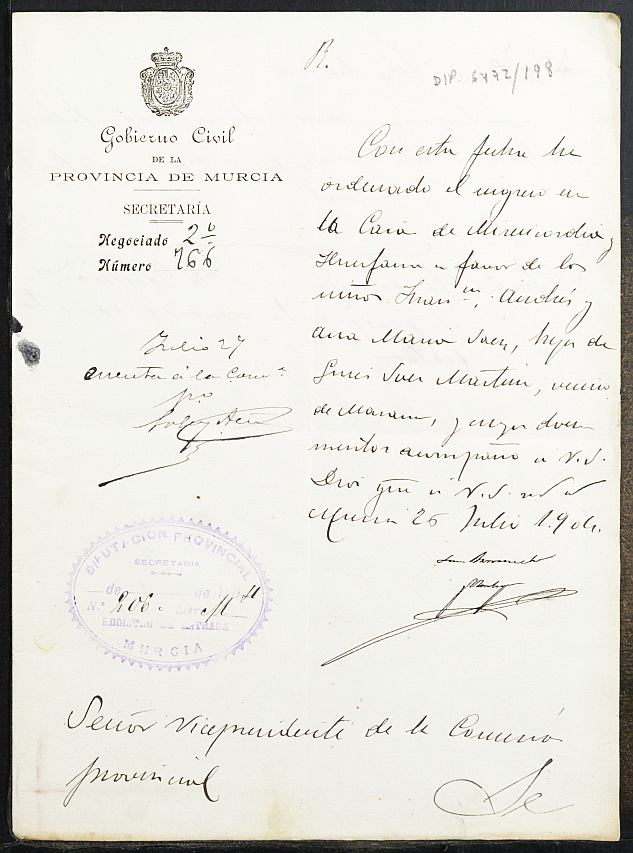 R.
DIP. 6472/198
Gobierno Civil
DE LA
PROVINCIA DE MURCIA
SECRETARÍA
Negociado 2º
Número 766
Con esta fecha he
ordenado el ingreso en
la Casa de Misericordia y
Huerfanos a favor de los
niños Franᶜᵒ, Andrés y
Ana Maria Saez, hijos de
Ginés Saez Martinez, vecino
de, y cuyos docu
mentos acompaño a V.S.
Dios gue a V.S.
Murcia 26 Julio 190
Julio 27
cuenta á la Comⁿ
DIPUTACION PROVINCIAL
SECRETARIA
de de 19
N.º 206
REGISTRO DE ENTRADA
MURCIA
Señor Vicepresidente de la Comisión
provincial